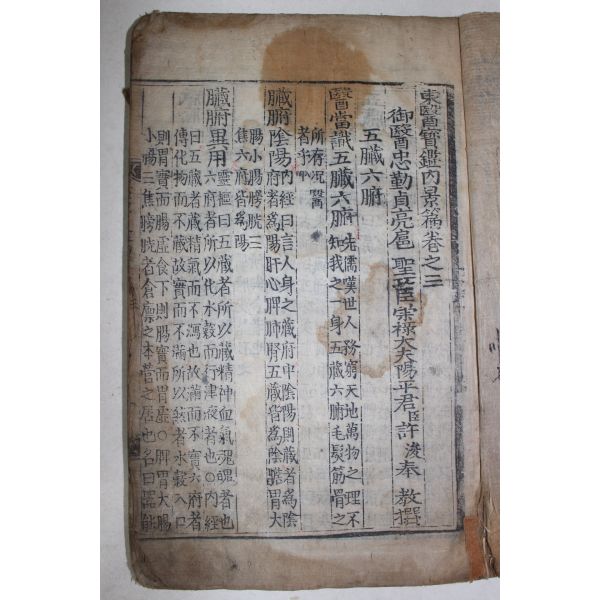 東醫寶鑑內景篇卷之三
御醫忠勤貞亮扈聖功臣崇祿大夫陽平君臣許浚奉敎撰
五臟六腑
醫當識五臟六腑先儒嘆世人務窮天地萬物之理不
知我之一身五臟六腑毛髮筋骨之
所存況醫
者乎
臟腑陰陽內經曰言人身之藏府中陰陽則藏者爲陰
府者爲陽肝心脾肺腎五藏皆爲陰膽胃大
腸小腸膀胱三
焦六府皆爲陽
臟腑異用靈樞曰五藏者所以藏精神血氣魂魄者也
六府者所以化水穀而行津液者也○內經
曰五藏者藏精氣而不瀉也故滿而不實六府者
傳化物而不藏故實而不滿所以然者水穀入口
則胃實而腸虛食下則腸實而胃虛○脾胃大腸
小腸三焦膀胱者倉廩之本營之居也名曰器能